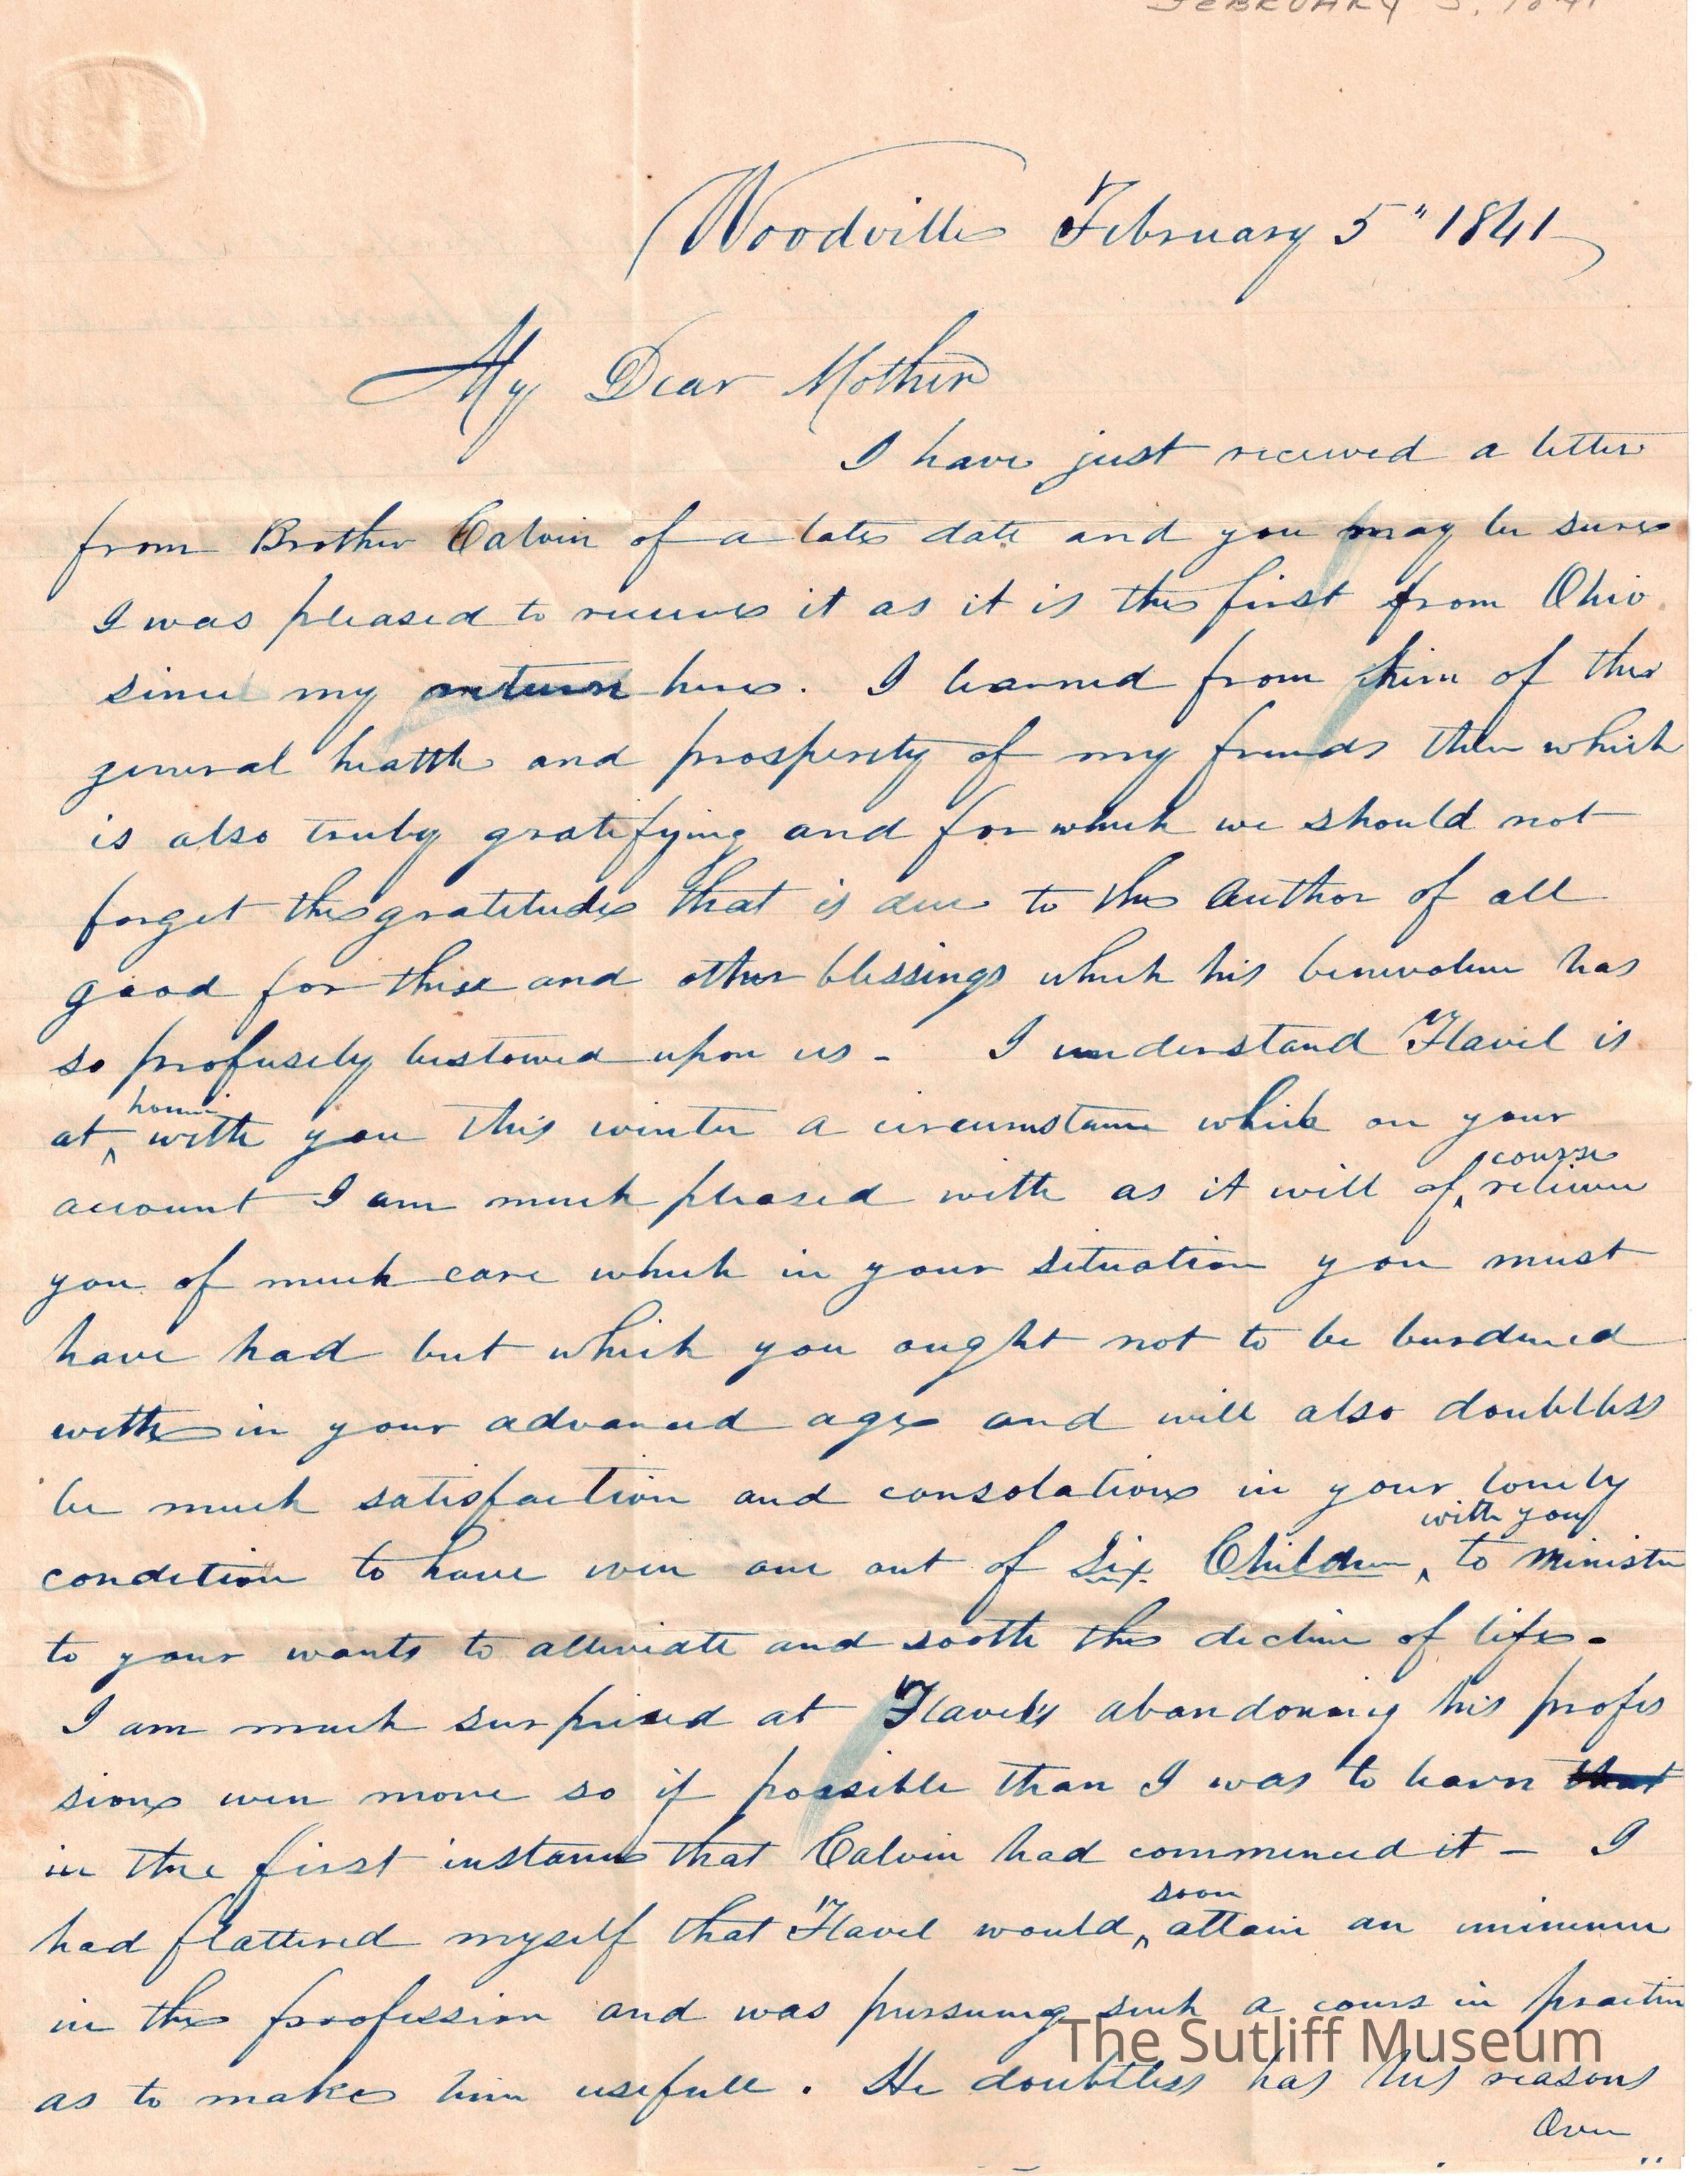 FEBRUARY 5, 1841
Woodville February 5" 1841
My Dear Mother
I have just received a letter
from Brother Calvin of a late date and you may be sure
I was pleased to receive it as it is the first from Ohio
since my return here. I learned from him of the
general health and prosperity of my friends there which
is also truly gratifying and for which we should not
forget the gratitude that is due to the Author of all
good for these and other blessings which his benevolence has
so profusely bestowed upon us - I understand Flavel is
at ^ home with you this winter a circumstance which on your
account I am much pleased with as it will of ^ course relieve
you of much care which in your situation you must
have had but which you ought not to be burdened
with in your advanced age and will also doubtless
be much satisfaction and consolation in your lonely
condition to have even one out of Six Children ^ with you to minister
to your wants to alleviate and sooth the decline of life.
I am much surprised at Flavel's abandoning his profes
sion even more so if possible than I was to learn that
in the first instance that Calvin had commenced it - I
had flattered myself that Flavel would ^ soon attain an eminence
in the profession and was pursuing such a course in practice
as to make him usefull. He doubtless has his reasons
Over
The Sutliff Museum